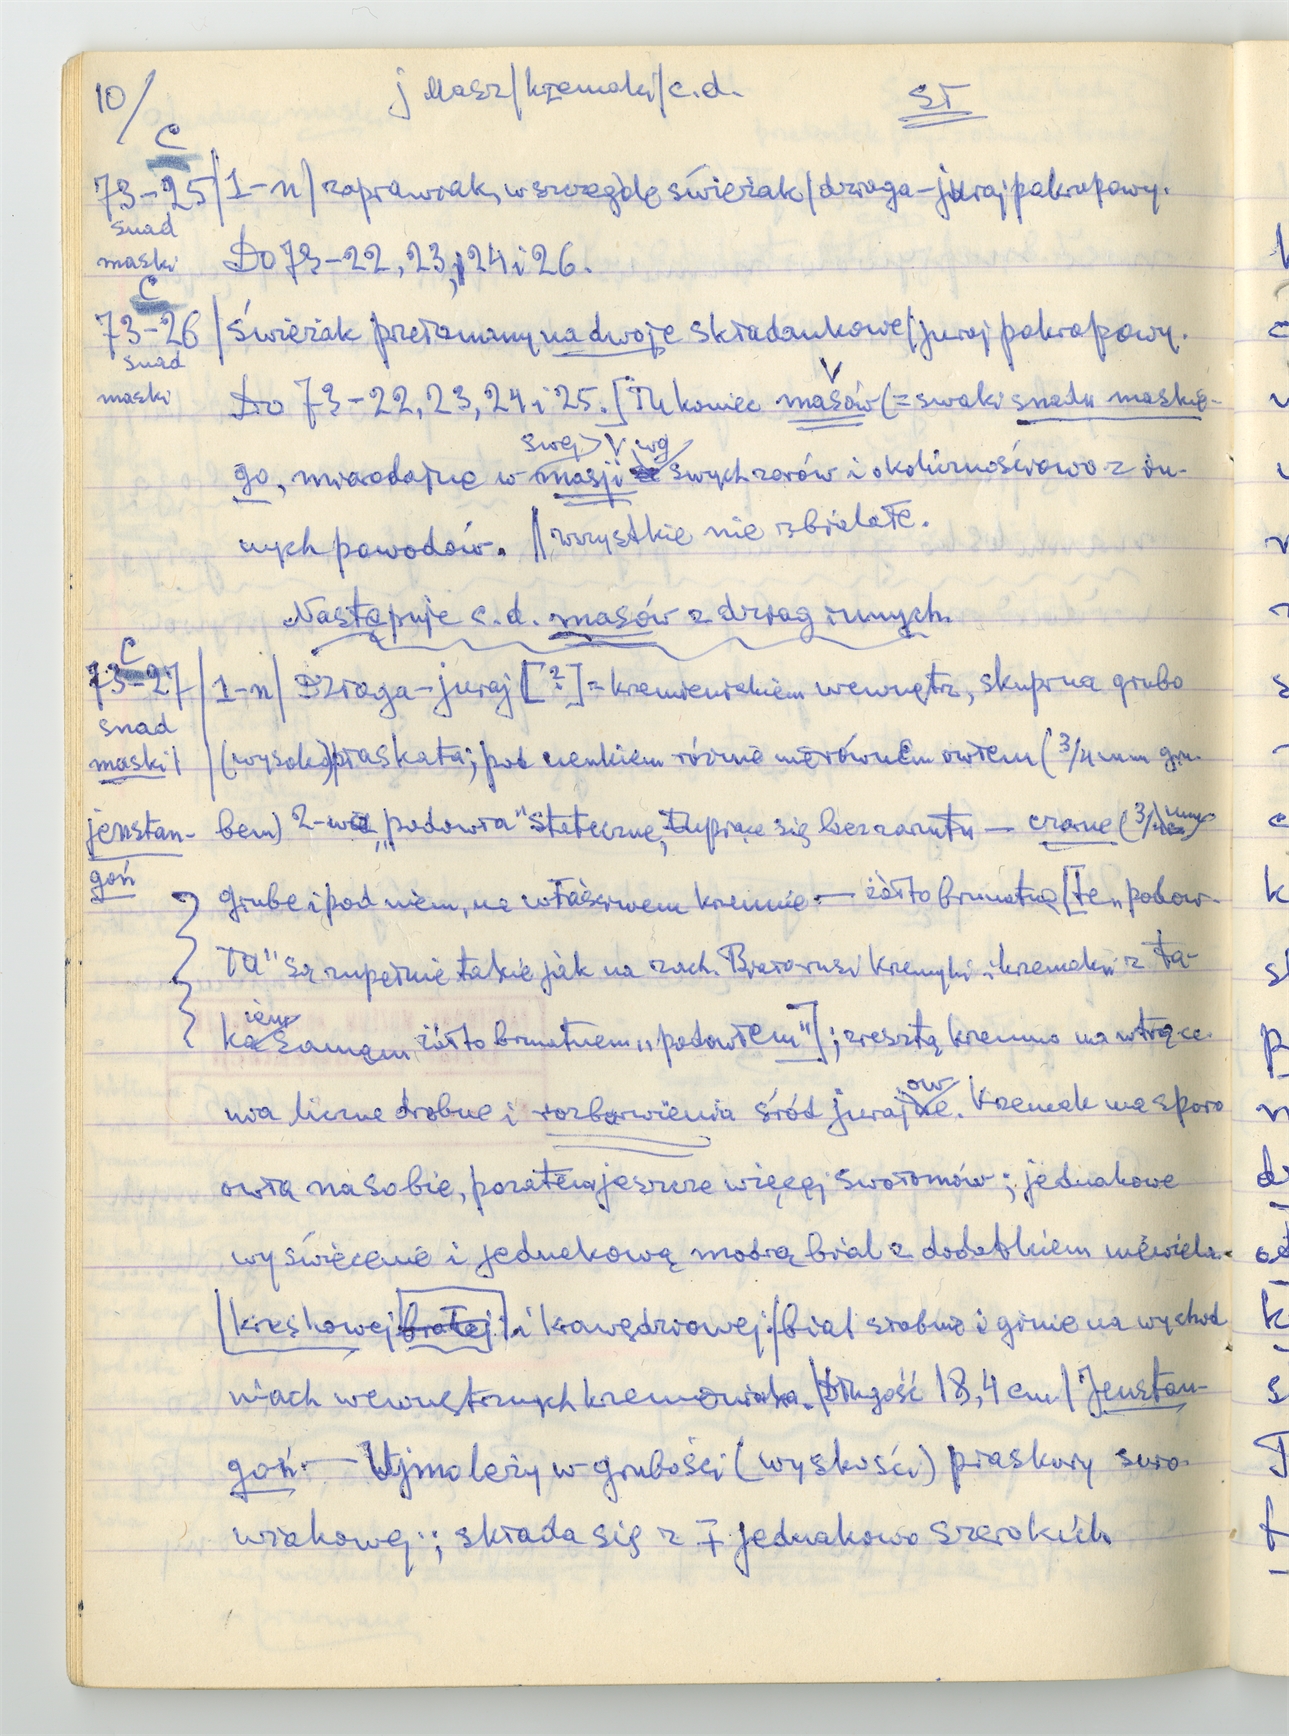 10/ j Masz/krzemaki/c.d. ST
C
73-25 |1-n| zaprawiak, w szczególe świeżak/dziaga-juraj pakropowy.
snad
maski Do 73-22, 23, 24 i 26.
C
73-26 | świeżak przełamany na dwoje składankowe/juraj pakropowy.
snad
maski Do 73-22, 23, 24 i 25. [Tu koniec masów (= swaki snadu maskie-
swej> wg
go, miarodajne w masji swych zarów i okolicznościowo z in-
nych powodów. || wszystkie nie zbielałe.
Następuje c.d. masów z dziag innych.
C
73-27 |1-n| Dziaga-juraj [?] = krzemienickiem wewnątrz, skupina grubo
snad
maski | (wysoko) płaskata; pod cienkiem różnie nierównem owłem (3/4 mm gru-
jenstan- bem) 2-wa „podowła" stateczne, łupiące się bez zarzutu — czarne (3/4 mm
goń
grube i pod niem, na właściwem krzemie — żółto brunatne [te „podow-
ła" są zupełnie takie jak na zach. Białorusi krzemyki i krzemaki z ta-
iem
kiem samem żółto brunatnem „podowłem"]; zresztą krzemio na wtrące-
ow
nia liczne drobne i rozbarwienia śród jurajowe. Krzemak ma sporo
owłą na sobie, pozatem jeszcze więcej swołomów; jednakowe
wyświecenie i jednakową modrą bial z dodatkiem niewielu
[kreskowej białej] i krawędziowej; /bial słabnie i ginie na wychod
niach wewnętrznych krzemowiaka. /długość 18,4 cm./ Jenstan-
goń. — Ujmo leży w grubości (wyskości) płaskury suro-
wiakowej; składa się z ∓ jednakowo szerokich